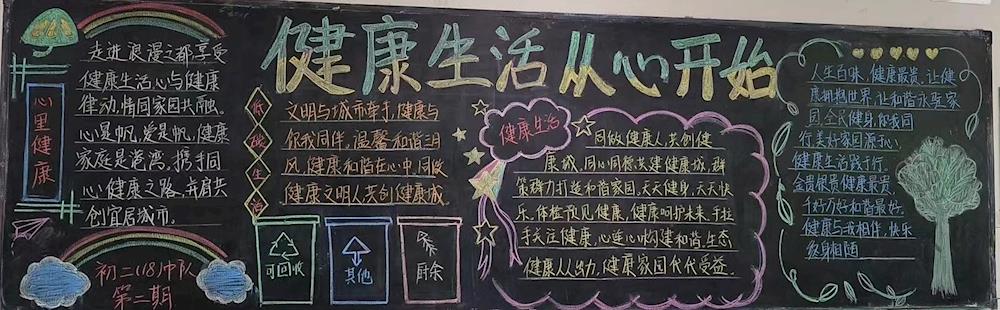 健康生活从心开始
心里健康
走进浪漫之都享受
健康生活心与健康
律动,情同家园共融、
心是帆,爱是帆,健康
家庭是港湾,携手同
心健康之路,并肩共
创宜居城市。
初二(18)中队
第二期
低碳生活
文明与城市牵手,健康与
你我同伴,温馨和谐三月
风,健康和谐在心中,同做
健康文明人,共创健康城
可回收
其他
厨余
健康生活
同做健康人,共创健
康城,同心同德,共建健康城,群
策群力打造和谐家园,天天健身,天天快
乐,体检预见健康,健康呵护未来,手拉
手关注健康,心连心构建和谐,生态
健康人人出力,健康家园代代受益.
人生百味,健康最贵,让健
康拥抱世界,让和谐永驻家
园全民健身,你我同
行美好家园源于心,
健康生活践于行。
金贵银贵健康最贵,
千好万好和谐最好。
健康与我相伴,快乐
终身相随